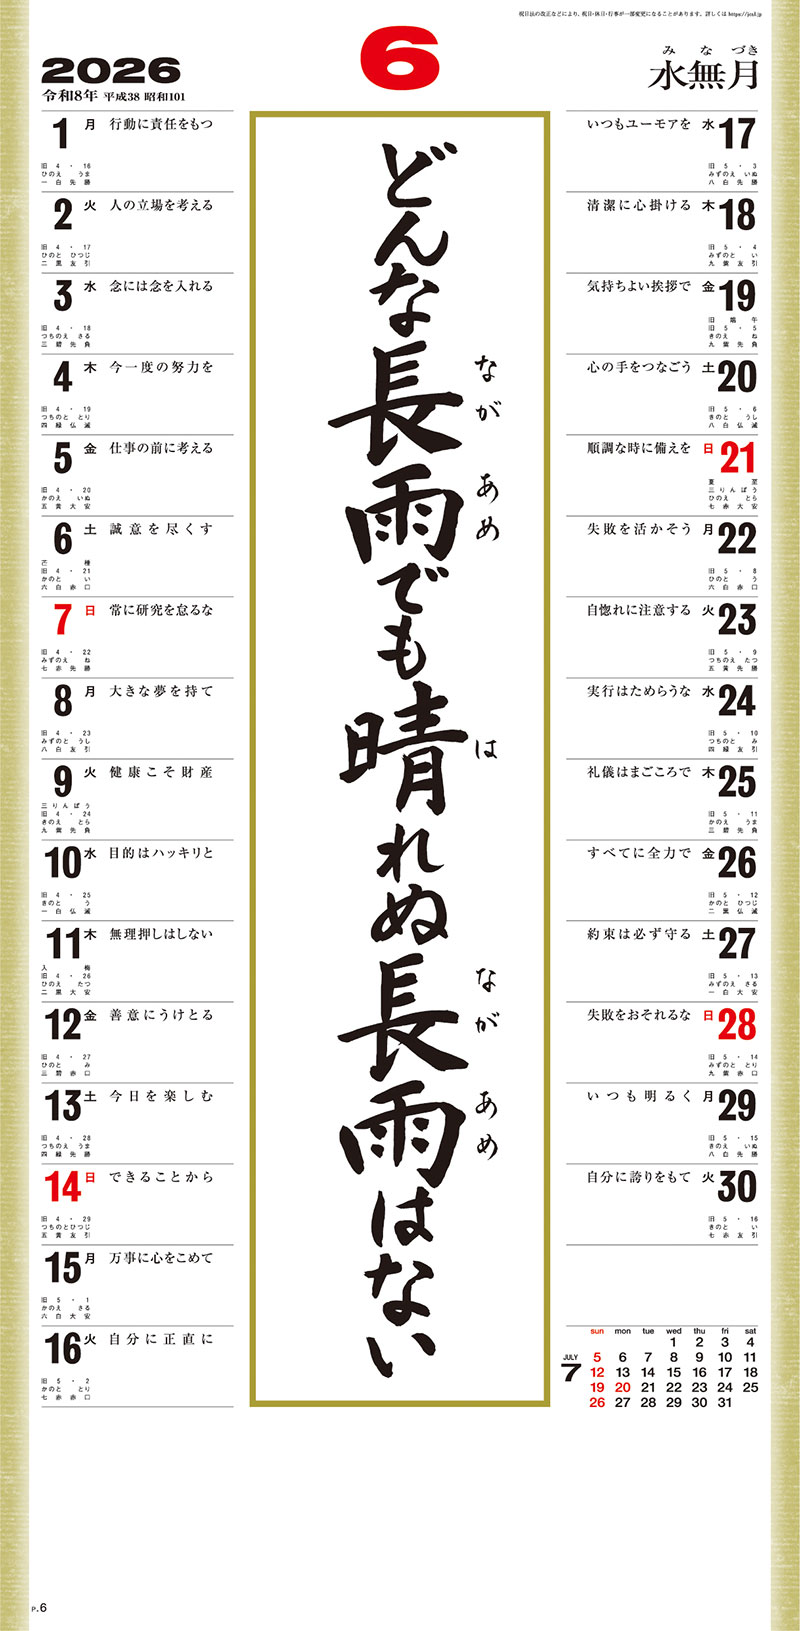 祝日法の改正などにより、祝日・休日・行事が一部変更になることがあります。詳しくは https://jcal.jp
2026
令和8年 平成38 昭和101
6
みなづき
水無月
どんな長雨でも晴れぬ長雨はない
ながあめ
は
ながあめ
1 月 行動に責任をもつ
旧4・16
ひのえ うま
一白先勝
2 火 人の立場を考える
旧4・17
ひのと ひつじ
二黒友引
3 水 念には念を入れる
旧4・18
つちのえ さる
三碧先負
4 木 今一度の努力を
旧4・19
つちのと とり
四緑仏滅
5 金 仕事の前に考える
旧4・20
かのえ いぬ
五黄大安
6 土 誠意を尽くす
芒種
旧4・21
かのと い
六白赤口
7 日 常に研究を怠るな
旧4・22
みずのえ ね
七赤先勝
8 月 大きな夢を持て
旧4・23
みずのと うし
八白友引
9 火 健康こそ財産
三りんぼう
旧4・24
きのえ とら
九紫先負
10 水 目的はハッキリと
旧4・25
きのと う
一白仏滅
11 木 無理押しはしない
入梅
旧4・26
ひのえ たつ
二黒大安
12 金 善意にうけとる
旧4・27
ひのと み
三碧赤口
13 土 今日を楽しむ
旧4・28
つちのえ うま
四緑先勝
14 日 できることから
旧4・29
つちのと ひつじ
五黄友引
15 月 万事に心をこめて
旧5・1
かのえ さる
六白大安
16 火 自分に正直に
旧5・2
かのと とり
七赤赤口
いつもユーモアを 水 17
旧5・3
みずのえ いぬ
八白先勝
清潔に心掛ける 木 18
旧5・4
みずのと い
九紫友引
気持ちよい挨拶で 金 19
旧端午
旧5・5
きのえ ね
九紫先負
心の手をつなごう 土 20
旧5・6
きのと うし
八白仏滅
順調な時に備えを 日 21
夏至
三りんぼう
ひのえ とら
七赤大安
失敗を活かそう 月 22
旧5・8
ひのと う
六白赤口
自惚れに注意する 火 23
旧5・9
つちのえ たつ
五黄先勝
実行はためらうな 水 24
旧5・10
つちのと み
四緑友引
礼儀はまごころで 木 25
旧5・11
かのえ うま
三碧先負
すべてに全力で 金 26
旧5・12
かのと ひつじ
二黒仏滅
約束は必ず守る 土 27
旧5・13
みずのえ さる
一白大安
失敗をおそれるな 日 28
旧5・14
みずのと とり
九紫赤口
いつも明るく 月 29
旧5・15
きのえ いぬ
八白先勝
自分に誇りをもて 火 30
旧5・16
きのと い
七赤友引
JULY
7
sun mon tue wed thu fri sat
1 2 3 4
5 6 7 8 9 10 11
12 13 14 15 16 17 18
19 20 21 22 23 24 25
26 27 28 29 30 31
P.6